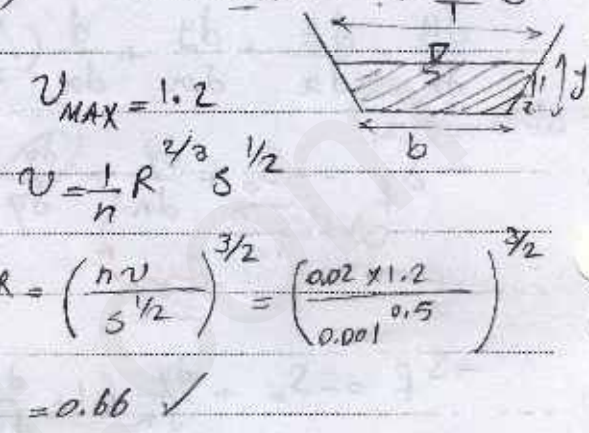 V_MAX = 1.2
b
y
v = 1/n R^2/3 S^1/2
R = (nv / S^1/2)^3/2 = (0.02 × 1.2 / 0.001^0.5)^3/2
= 0.66 ✓